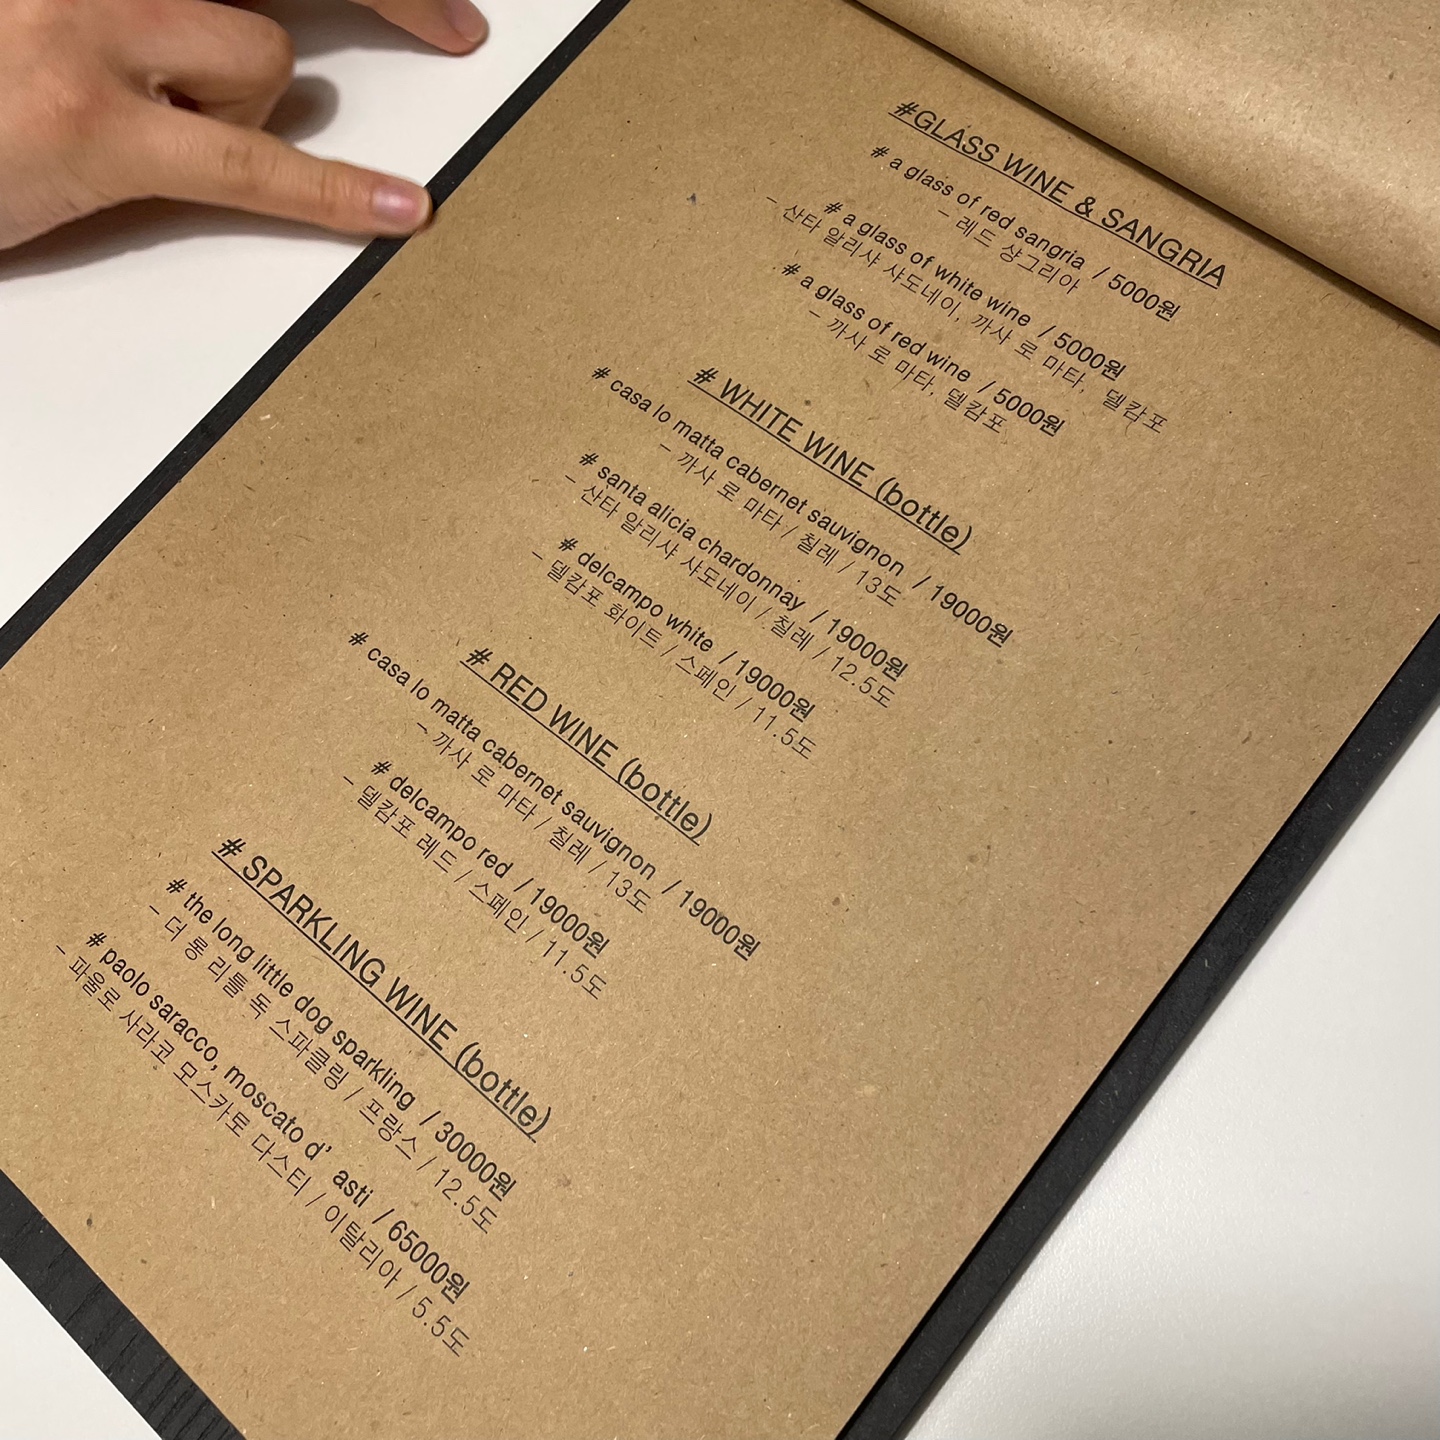 #GLASS WINE & SANGRIA
# a glass of red sangria / 5000원
- 레드 샹그리아
# a glass of white wine / 5000원
- 산타 알리샤 샤도네이, 까사 로 마타, 델캄포
# a glass of red wine / 5000원
- 까사 로 마타, 델캄포
# WHITE WINE (bottle)
# casa lo matta cabernet sauvignon / 19000원
- 까사 로 마타 / 칠레 / 13도
# santa alicia chardonnay / 19000원
- 산타 알리샤 샤도네이 / 칠레 / 12.5도
# delcampo white / 19000원
- 델캄포 화이트 / 스페인 / 11.5도
# RED WINE (bottle)
# casa lo matta cabernet sauvignon / 19000원
- 까사 로 마타 / 칠레 / 13도
# delcampo red / 19000원
- 델캄포 레드 / 스페인 / 11.5도
# SPARKLING WINE (bottle)
# the long little dog sparkling / 30000원
- 더 롱 리틀 독 스파클링 / 프랑스 / 12.5도
# paolo saracco, moscato d' asti / 65000원
- 파울로 사라코 모스카토 다스티 / 이탈리아 / 5.5도